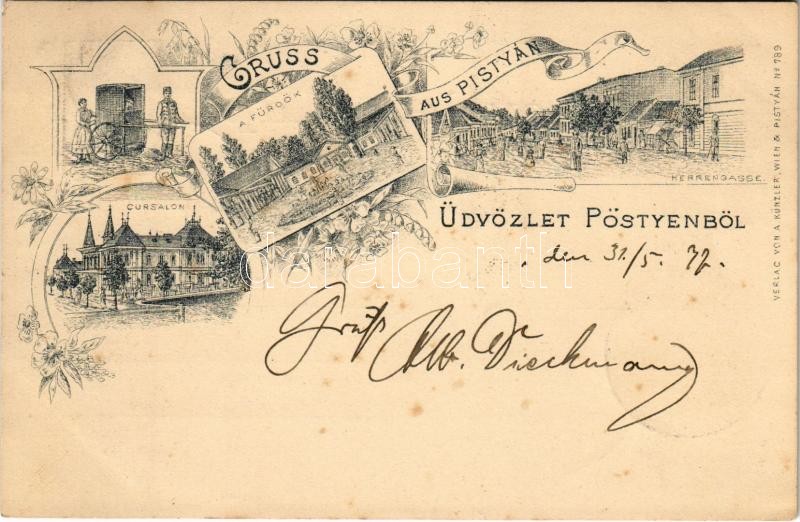 GRUSS
AUS PISTYÁN
A FÜRDÖK
HERRENGASSE.
CURSALON
ÜDVÖZLET PÖSTYENBÖL
den 31/5. 97.
Gruß
Alb. Dieckmann
VERLAG VON A. KUNZLER, WIEN & PISTYÁN No 789
darabanth